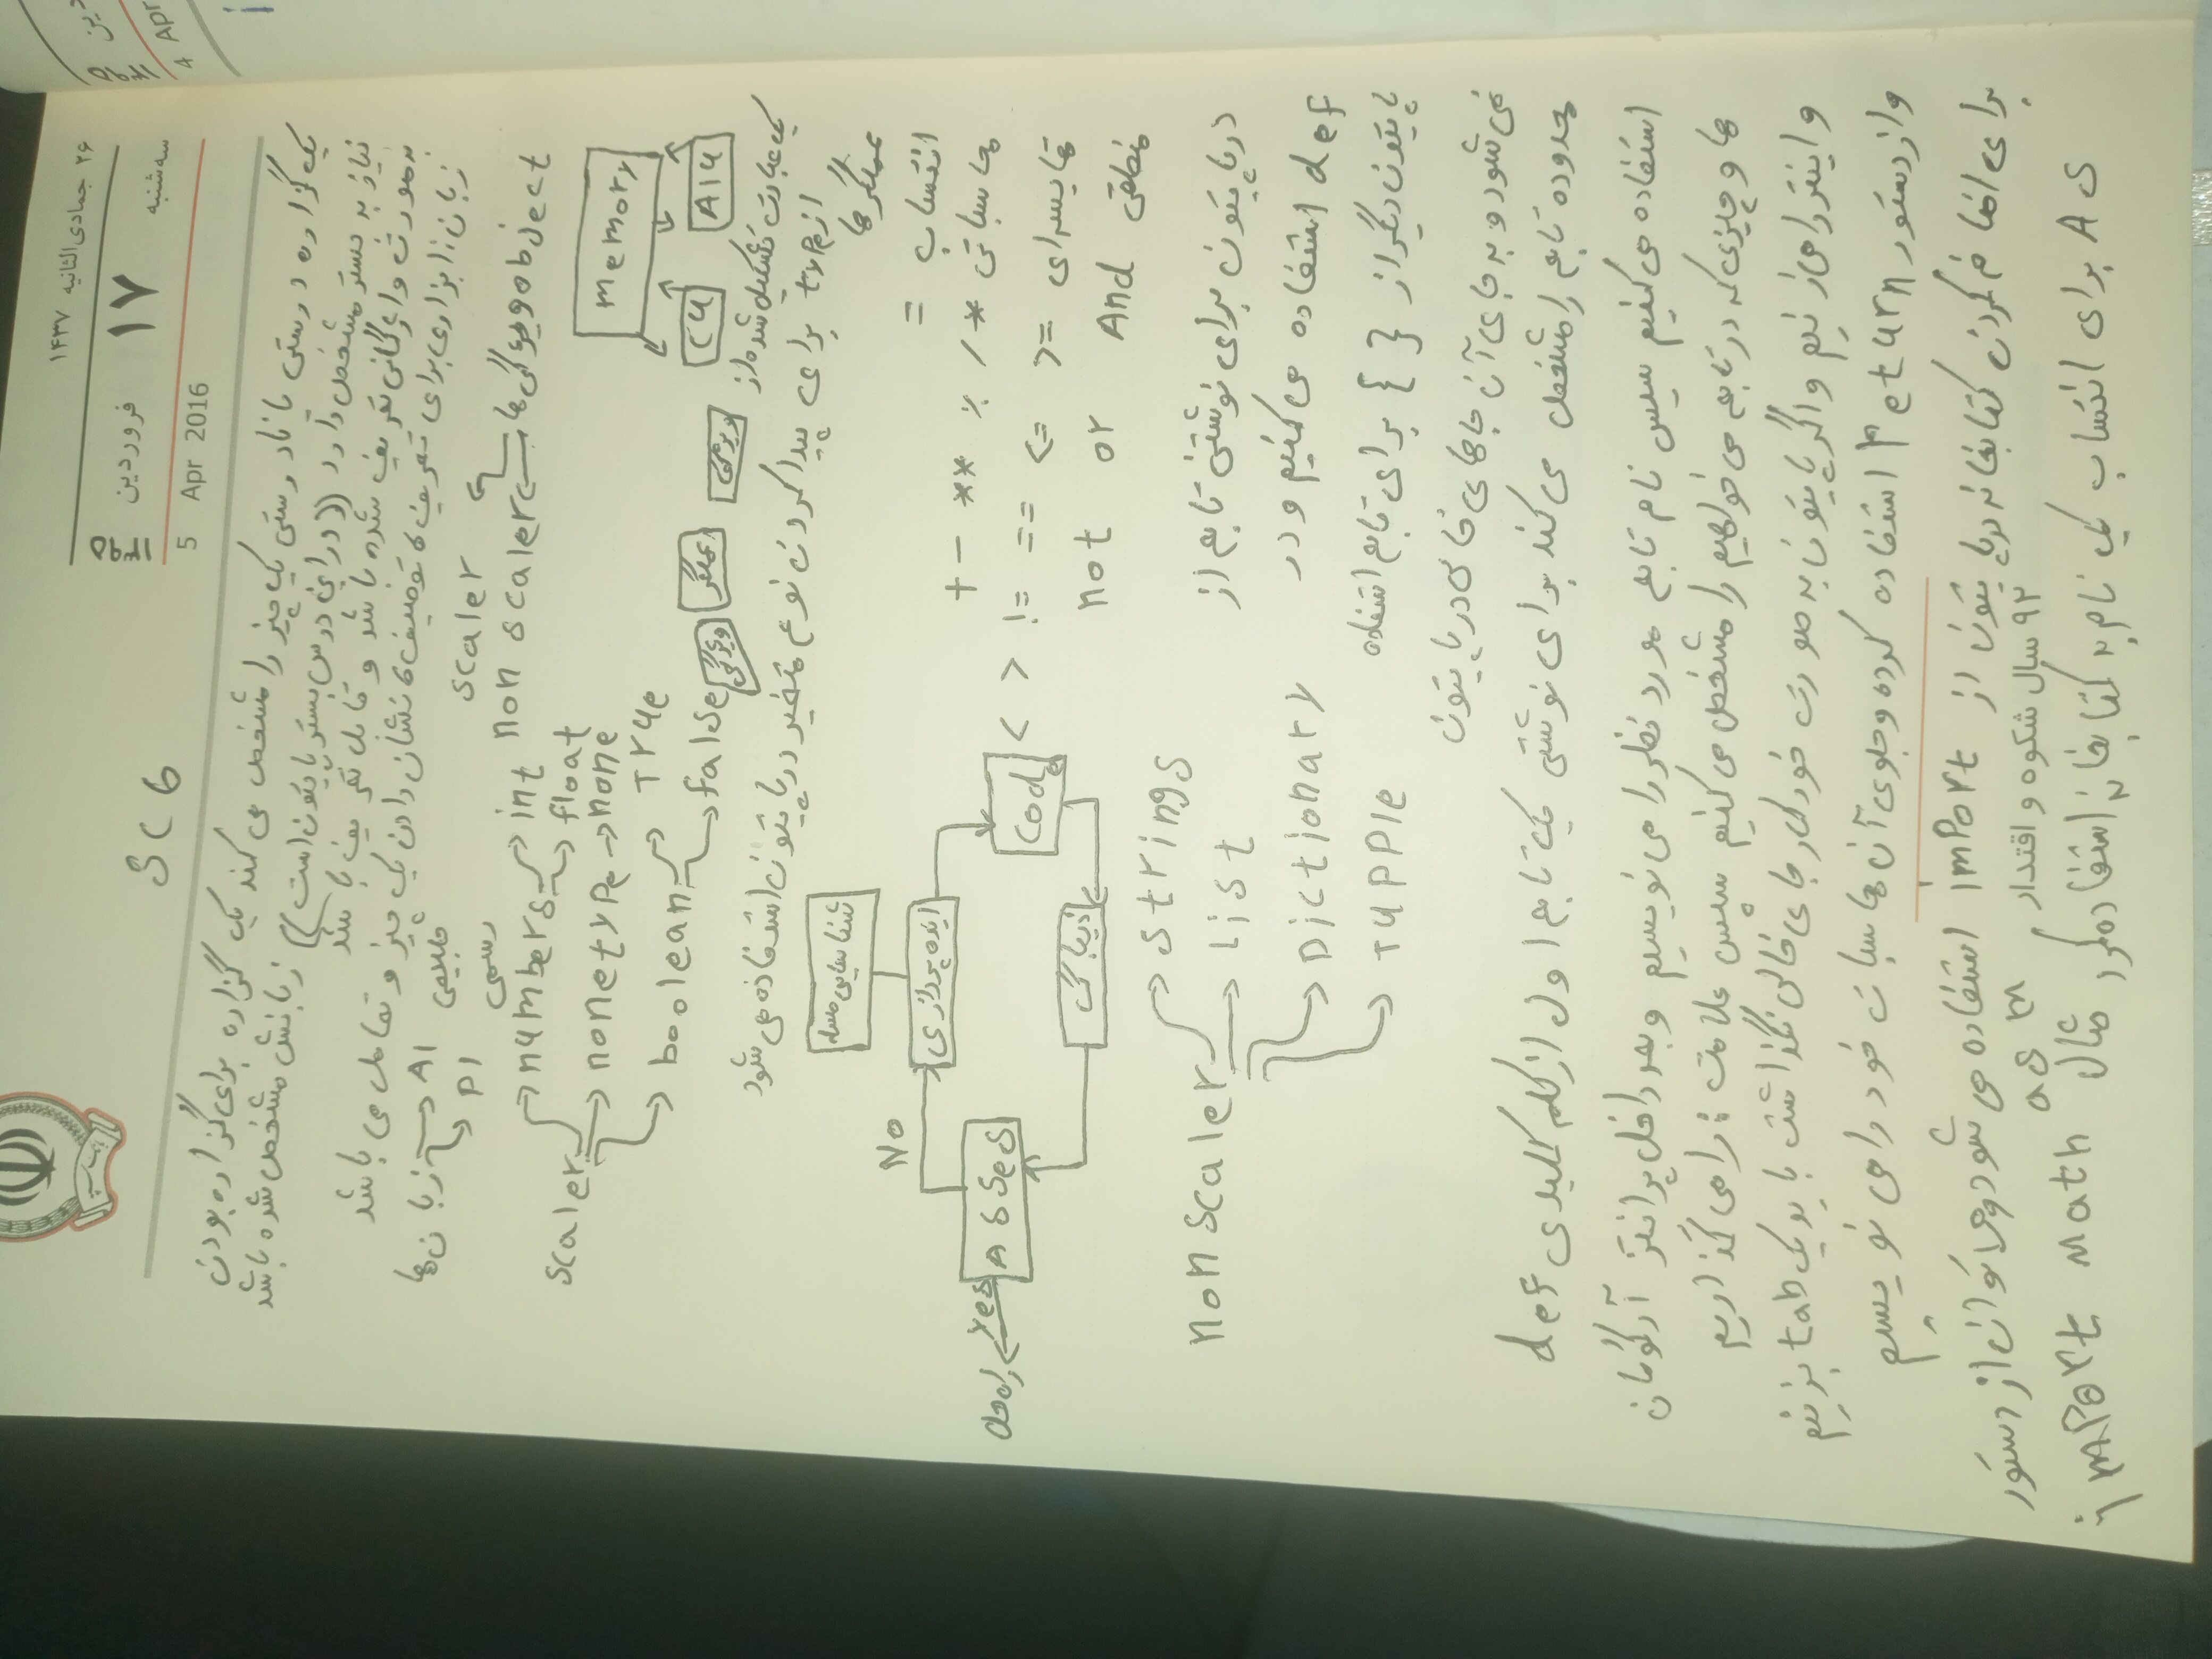 بانک سپه
۲۶ جمادی‌الثانیه ۱۴۳۷
سه‌شنبه ۱۷ فروردین ۱۳۹۵
5 Apr 2016
4 Apr
SC6
یک گزاره درستی یا نادرستی یک چیز را مشخص می کند یک گزاره برای گزاره بودن
نیاز به بستر مشخص دارد ((در این درس بستر پایتون است)) زبانش مشخص شده باشد
به صورت واژگانی تعریف شده باشد و قابل تعریف باشد
زبان: ابزاری برای تعریف، توصیف، نشان دادن یک چیز و تعامل می باشد
زبان ها
طبیعی A1
رسمی P1
object ویژگی ها
scaler
non scaler
scaler
numbers
int
float
nonetype
none
boolean
True
false
memory
CU
A1U
یک عبارت تشکیل شده از
ویژگی
عملگر
ویژگی
از type برای پیدا کردن نوع متغیر در پایتون استفاده می شود
شناسایی مسله
ایده پردازی
code
دیباگ
Asses
No
yes
راه حل
عملگرها
انتساب =
محاسباتی * / % ** - +
مقایسه‌ای >= <= == != > <
منطقی And or not
non scaler
strings
list
Dictionary
Tupple
در پایتون برای نوشتن تابع از
def استفاده می کنیم و در
پایتون دیگر از { } برای تابع استفاده
نمی شود و به جای آن جاهای خالی در پایتون
محدوده تابع را مشخص می کند برای نوشتن یک تابع اول از کلم کلیدی def
استفاده می کنیم سپس نام تابع مورد نظر را می نویسیم و بعد داخل پرانتز آرگومان
ها و چیزی که در تابع می خواهیم را مشخص می کنیم سپس علامت : را می گذاریم
و اینتر را می زنیم و اگر پایتون به صورت خودکار جای خالی نگذاشت باید یک tab بزنیم
و از دستور return استفاده کرده و جلوی آن محاسبات خود را می نویسیم
برای اضافه کردن کتابخانه در پایتون از import استفاده می شود و می توان از دستور
۹۲ سال شکوه و اقتدار
As برای انتساب یک نام به کتابخانه استفاده کرد مثال import Math as m